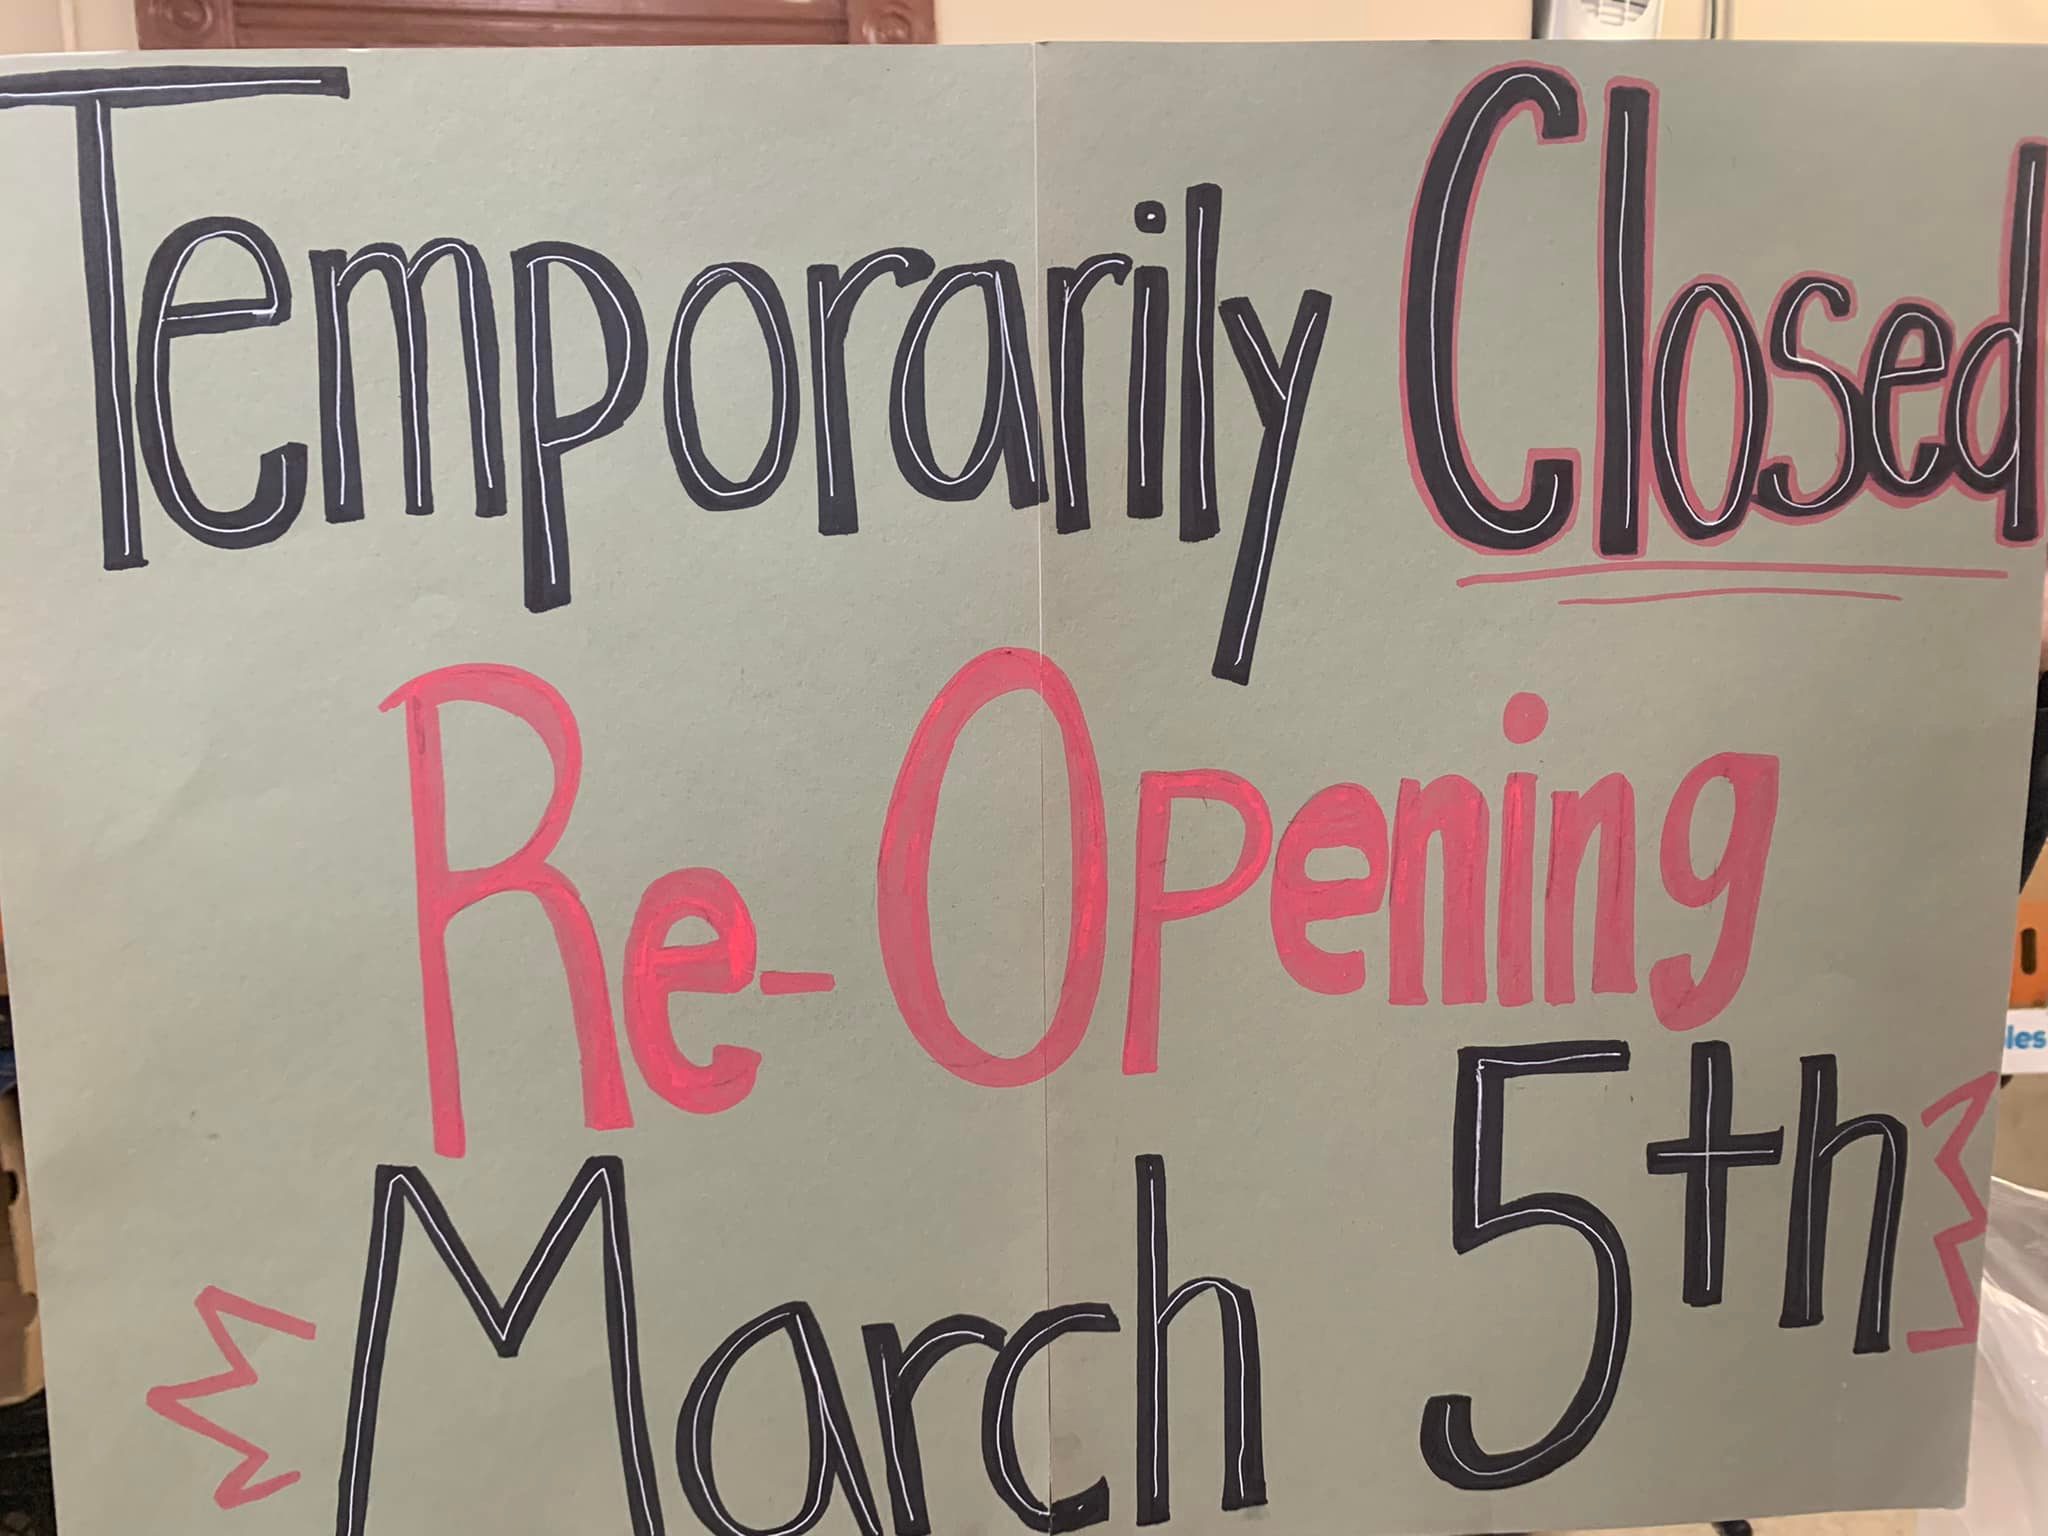 Temporarily Closed
Re-Opening
March 5th
les